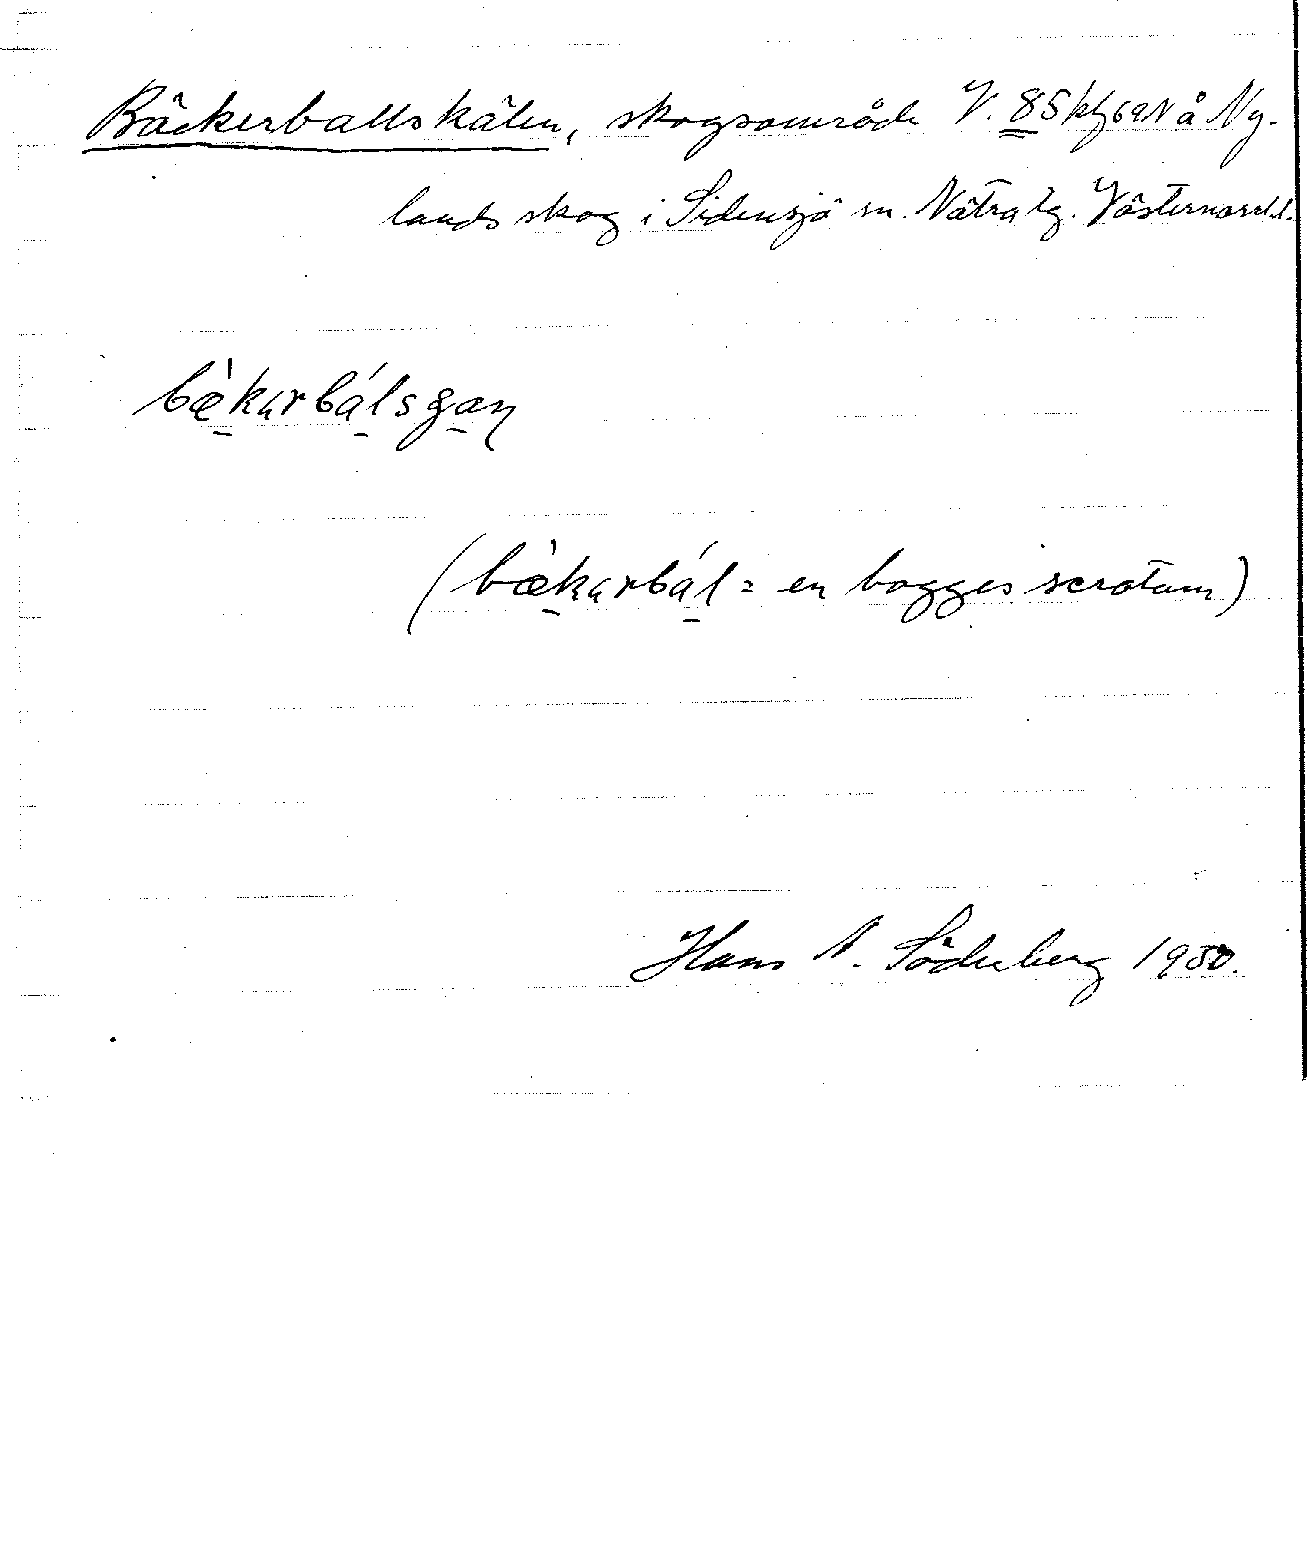 Bäckerballskälen, skogsområde V. 85 å Ny-
lands skog i Sidensjö sn. Nätra tg. Västernorrl.l.
bæ̀karbálsʃan
(bæ̀karbál = en bagges scrotum)
Hans N. Söderberg 1950.